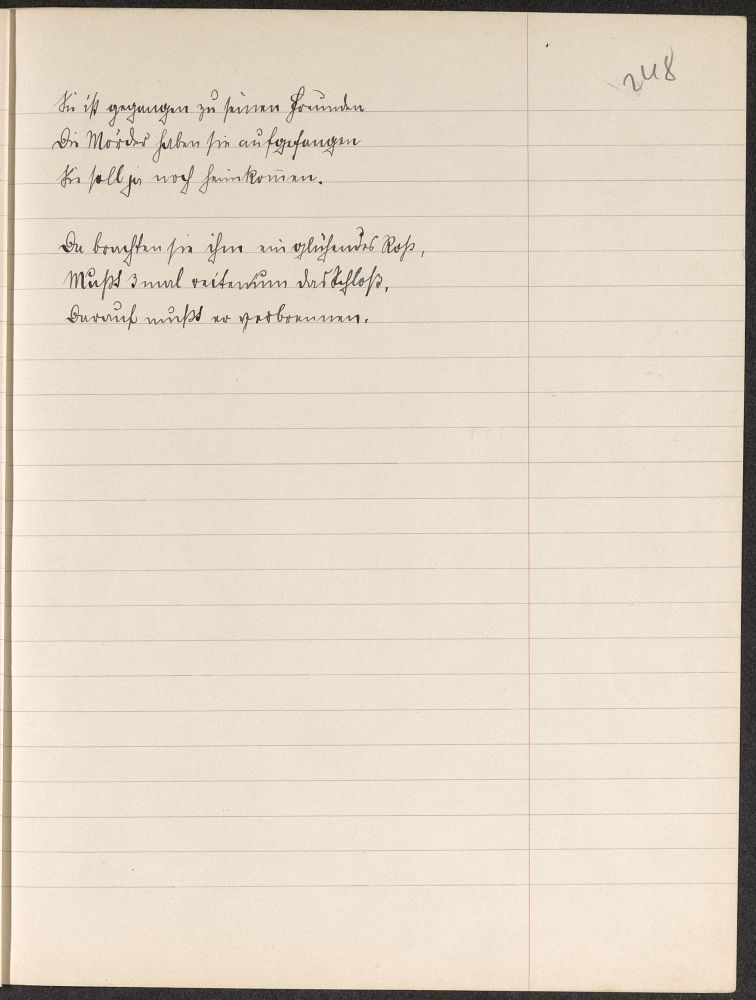 248
Sie ist gegangen zu seinen Freunden
Die Mörder haben sie aufgefangen
Sie soll ja noch heimkom̄en.
Da brachten sie ihm ein glühendes Roß,
Mußt 3 mal reiten um das Schloß,
Darauf mußt er verbrennen.